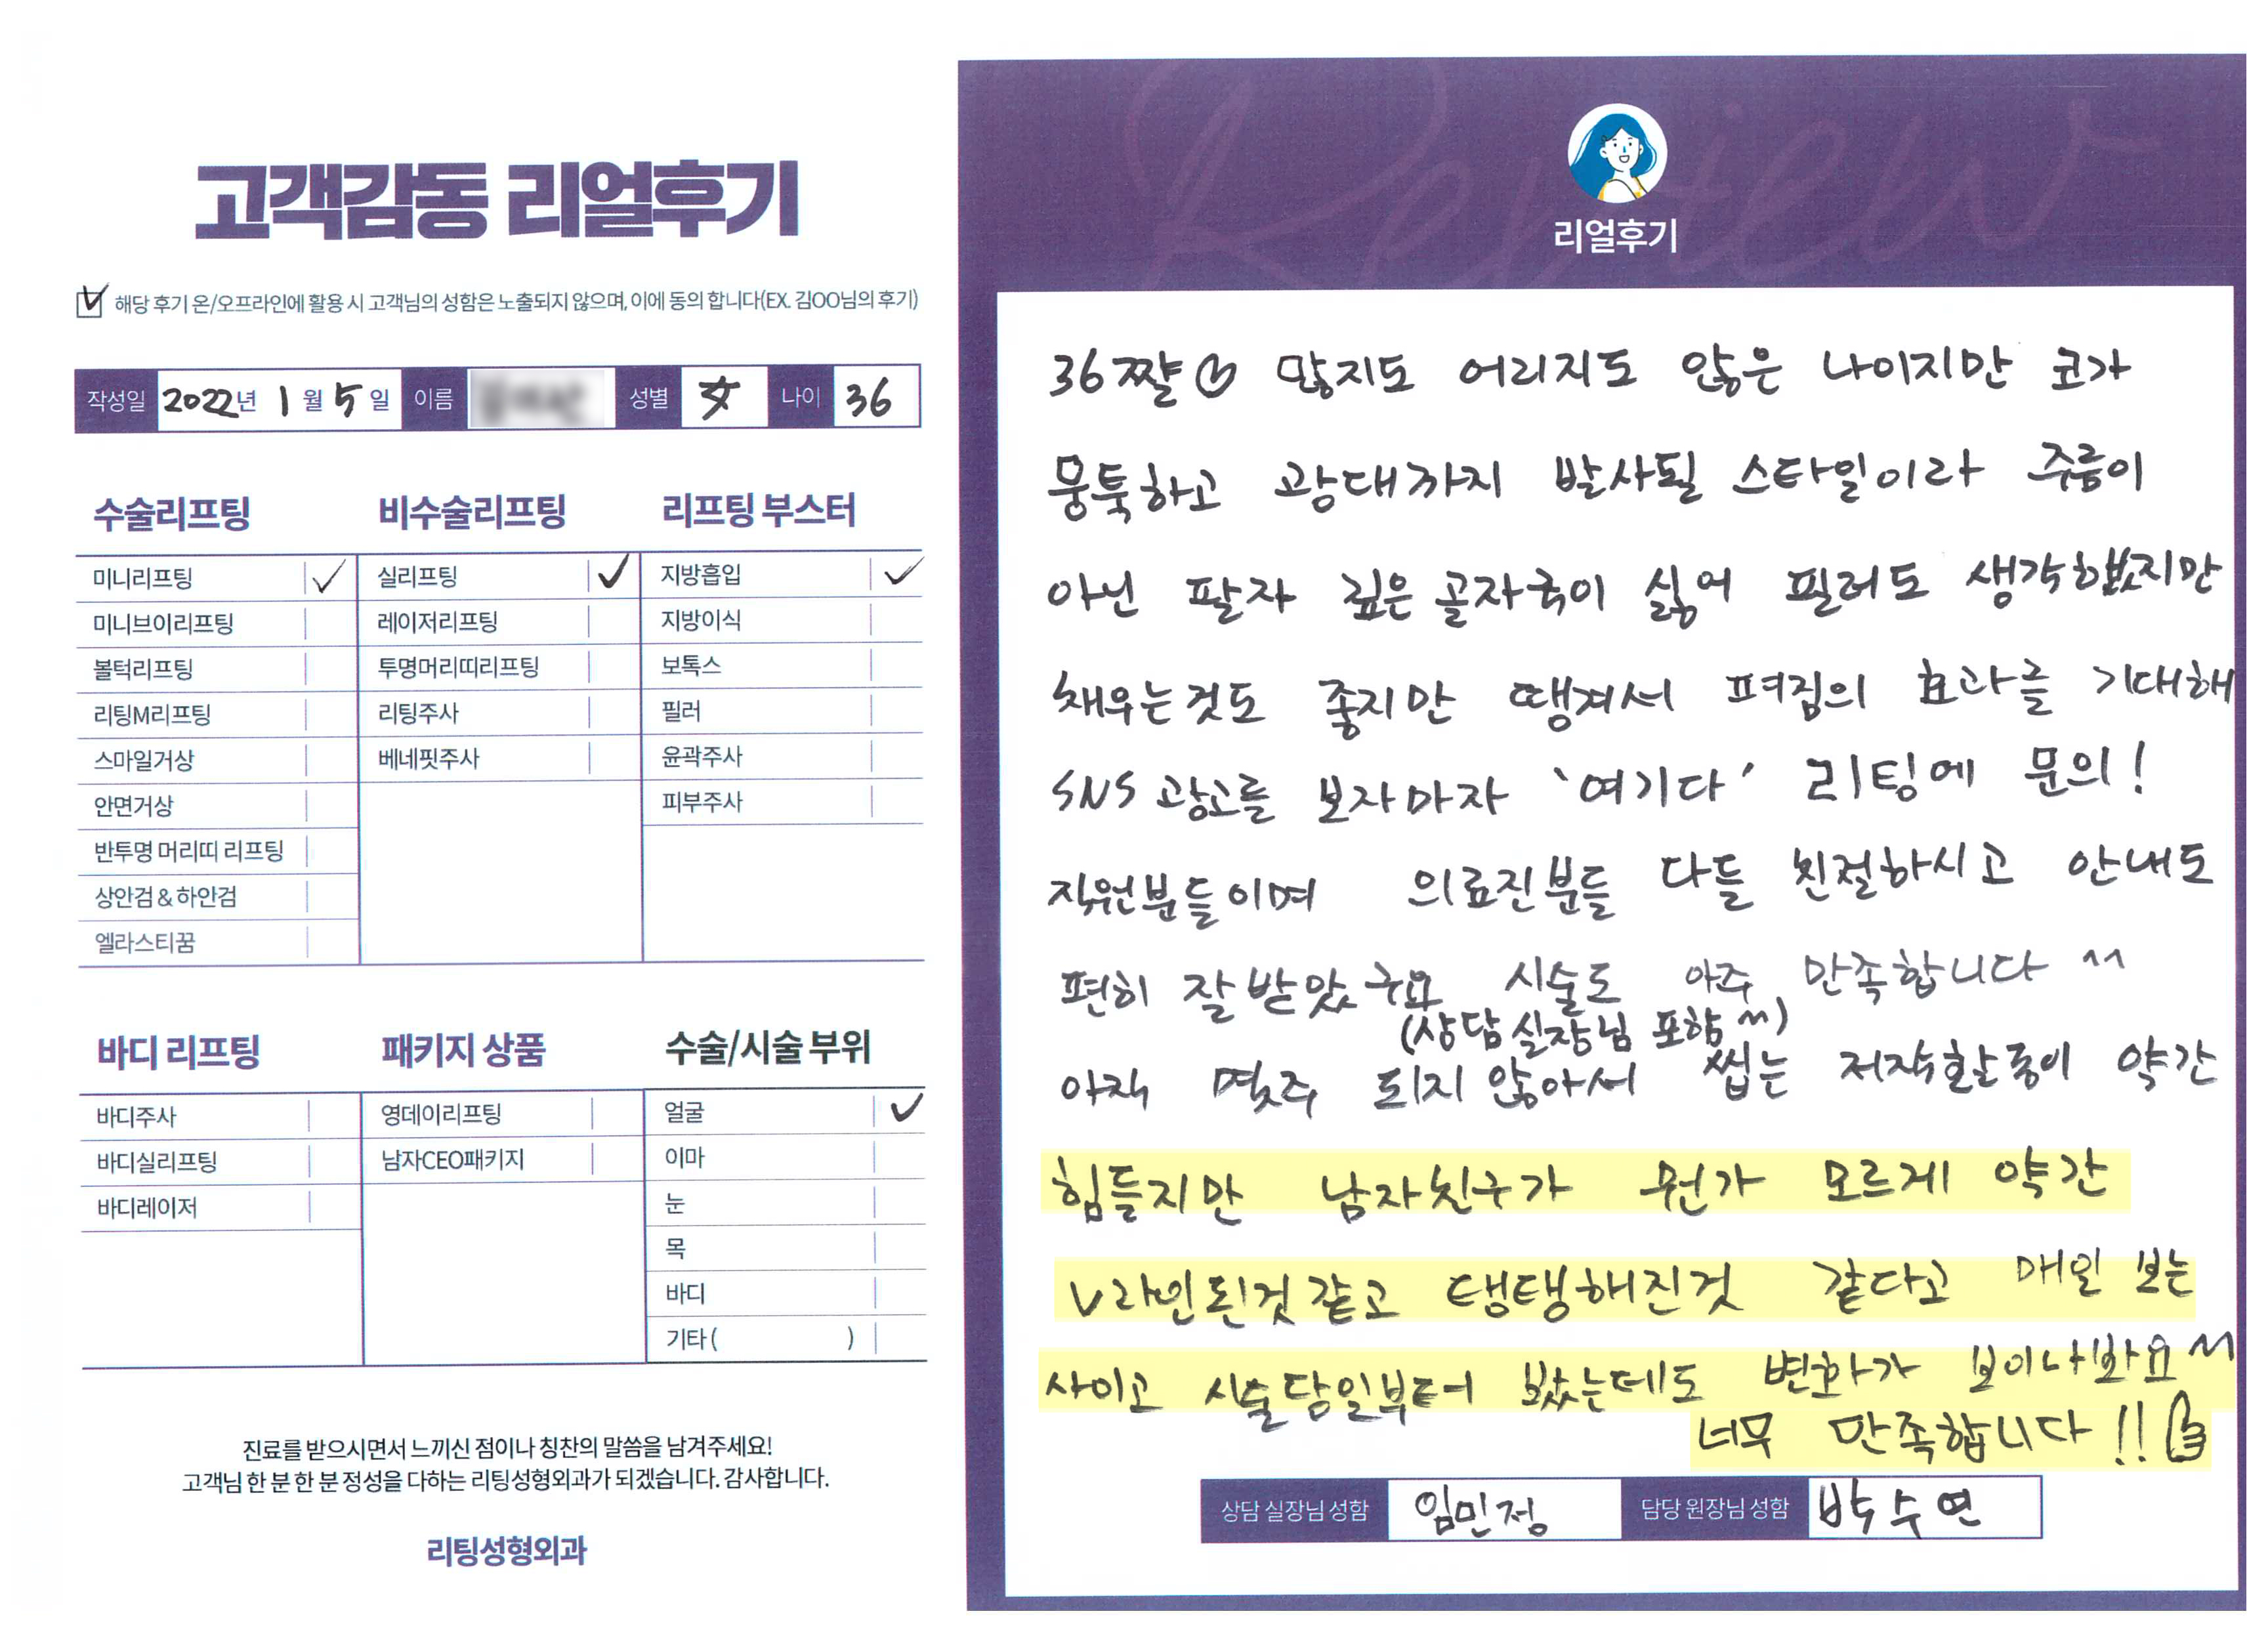 고객감동 리얼후기
해당 후기 온/오프라인에 활용 시 고객님의 성함은 노출되지 않으며, 이에 동의 합니다(EX. 김OO님의 후기)
작성일 2022년 1월 5일 이름 성별 女 나이 36
수술리프팅
미니리프팅
미니브이리프팅
볼턱리프팅
리팅M리프팅
스마일거상
안면거상
반투명 머리띠 리프팅
상안검 & 하안검
엘라스티꿈
비수술리프팅
실리프팅
레이저리프팅
투명머리띠리프팅
리팅주사
베네핏주사
리프팅 부스터
지방흡입
지방이식
보톡스
필러
윤곽주사
피부주사
바디 리프팅
바디주사
바디실리프팅
바디레이저
패키지 상품
영데이리프팅
남자CEO패키지
수술/시술 부위
얼굴
이마
눈
목
바디
기타 ( )
진료를 받으시면서 느끼신 점이나 칭찬의 말씀을 남겨주세요!
고객님 한 분 한 분 정성을 다하는 리팅성형외과가 되겠습니다. 감사합니다.
리팅성형외과
Review
리얼후기
36짤 많지도 어리지도 않은 나이지만 코가
뭉툭하고 광대까지 발사될 스타일이라 주름이
아닌 팔자 깊은 골자국이 싫어 필러도 생각했지만
채우는것도 좋지만 땡겨서 펴짐의 효과를 기대해
SNS 광고를 보자마자 '여기다' 리팅에 문의!
직원분들이며 의료진분들 다들 친절하시고 안내도
편히 잘 받았구요 시술도 아주 만족합니다 ^^
(상담 실장님 포함 ^^)
아직 몇주 되지 않아서 씹는 저작활동이 약간
힘들지만 남자친구가 뭔가 모르게 약간
V라인된것 같고 탱탱해진것 같다고 매일 보는
사이고 시술당일부터 봤는데도 변화가 보이나봐요 ^^
너무 만족합니다!!
상담 실장님 성함 임민정 담당 원장님 성함 박수연